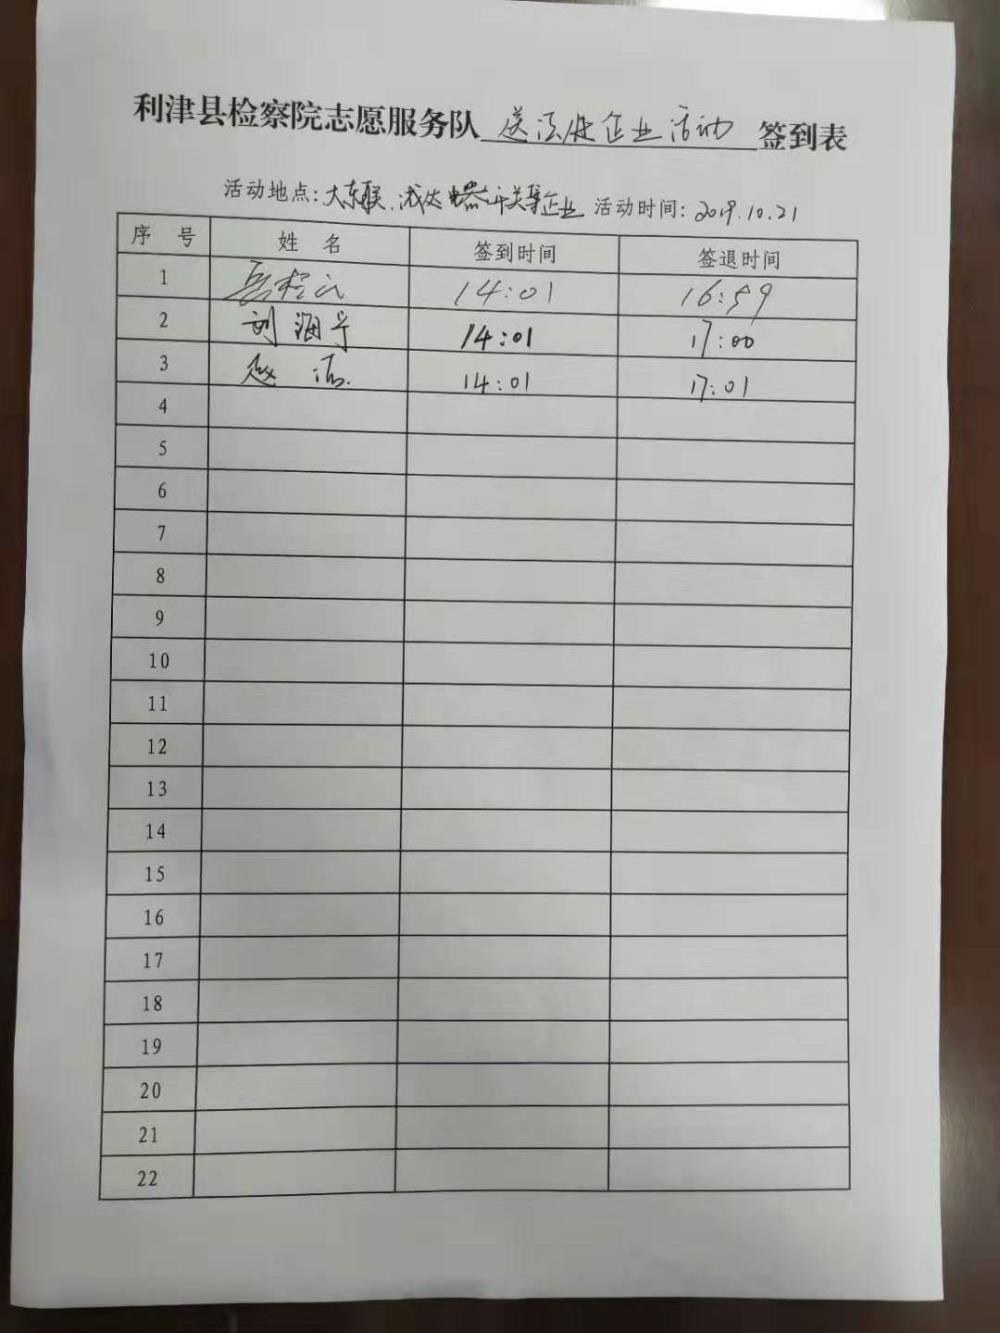 利津县检察院志愿服务队送法进企业活动签到表
活动地点:大东联、 等企业 活动时间:2019.10.21
序 号 姓 名 签到时间 签退时间
1 14:01 16:59
2 刘海宁 14:01 17:00
3 赵洁 14:01 17:01
4
5
6
7
8
9
10
11
12
13
14
15
16
17
18
19
20
21
22